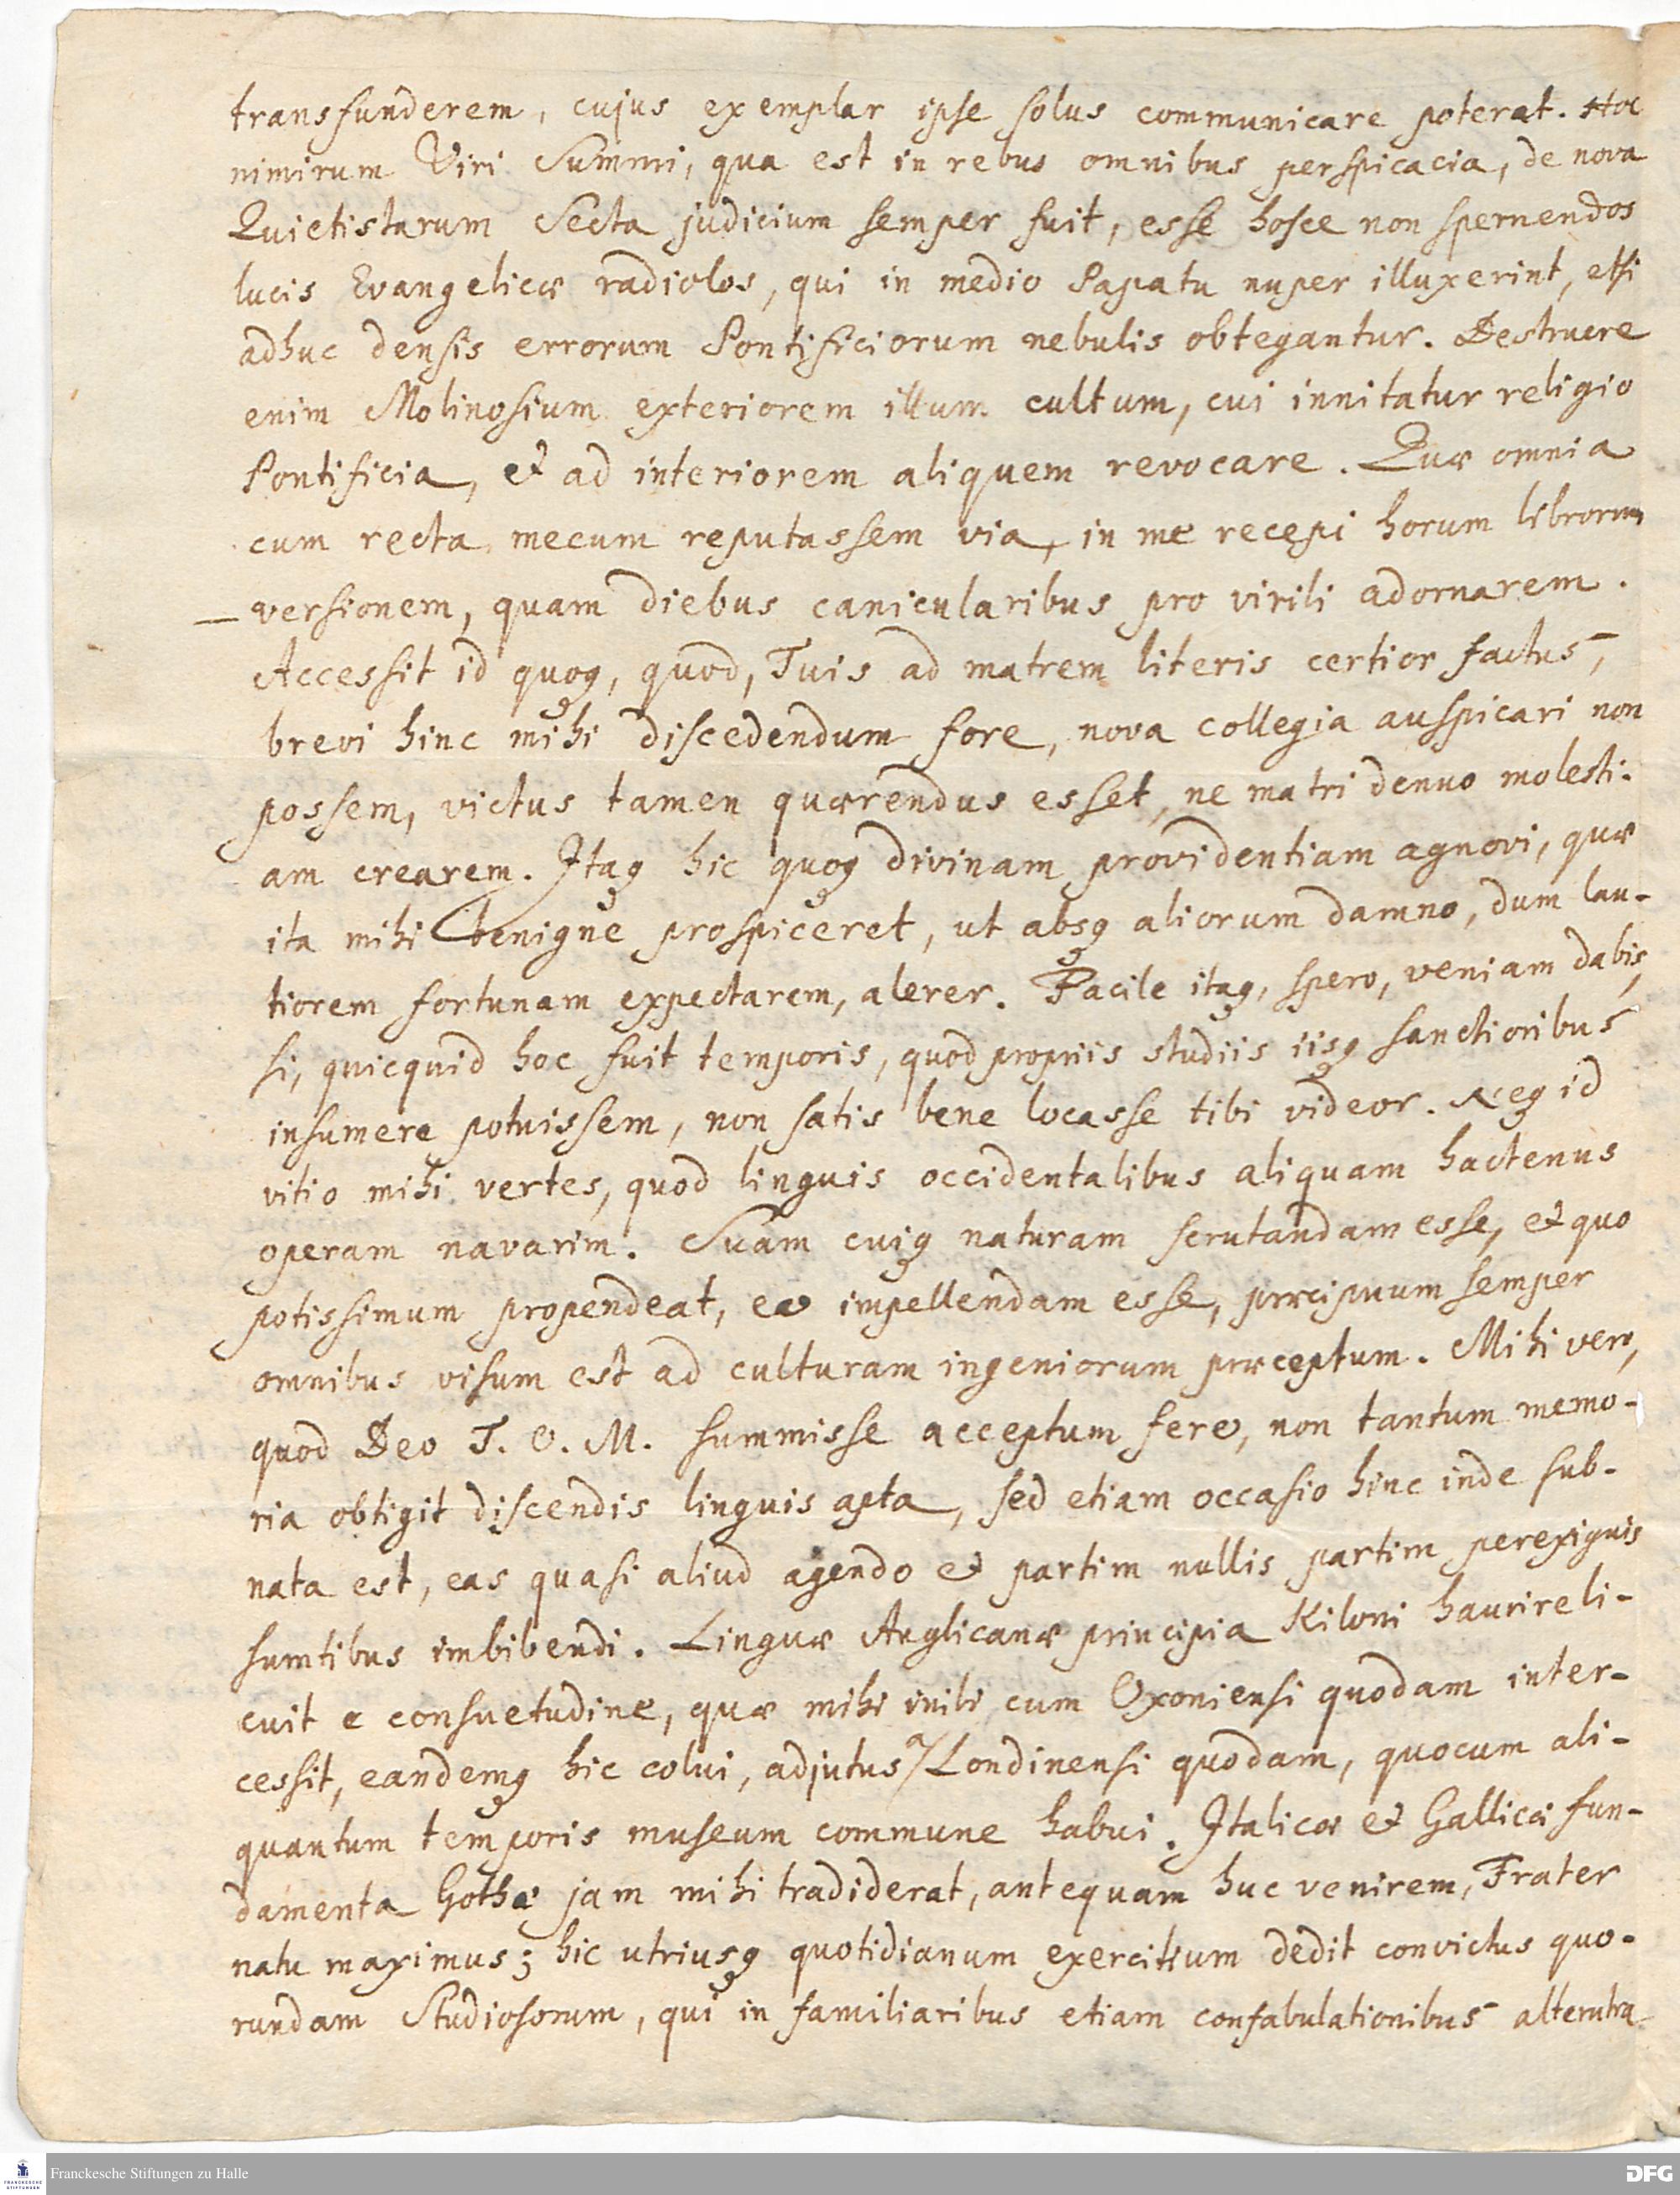 transfunderem, cujus exemplar ipse solus communicare poterat. Hoc
nimirum Viri Summi, qua est in rebus omnibus perspicacia, de nova
Quietistarum Secta judicium semper fuit, esse hosce non spernendos
lucis Evangelicæ radiolos, qui in medio Papatu nuper illuxerint, etsi
adhuc densis errorum Pontificiorum nebulis obtegantur. Destruere
enim Molinosium exteriorem illum cultum, cui innitatur religio
Pontificia, et ad interiorem aliquem revocare. Quæ omnia
cum recta mecum reputassem via, in me recepi horum librorum
versionem, quam diebus canicularibus pro virili adornarem.
Accessit id quoq, quod, Tuis ad matrem literis certior factus,
brevi hinc mihi discedendum fore, nova collegia auspicari non
possem, victus tamen quærendus esset, ne matri denuo molesti-
am crearem. Itaq hic quoq divinam providentiam agnovi, quæ
ita mihi benigne prospiceret, ut absq aliorum damno, dum lau-
tiorem fortunam expectarem, alerer. Facile itaq, spero, veniam dabis,
si, quicquid hoc fuit temporis, quod propriis studiis iisq sanctioribus
insumere potuissem, non satis bene locasse tibi videor. Neq id
vitio mihi vertes, quod linguis occidentalibus aliquam hactenus
operam navarim. Suam cuiq naturam scrutandam esse, et quo
potissimum propendeat, eo impellendam esse, præcipuum semper
omnibus visum est ad culturam ingeniorum præceptum. Mihi vero,
quod Deo T. O. M. summisse acceptum fero, non tantum memo-
ria obtigit discendis linguis apta, sed etiam occasio hinc inde sub-
nata est, eas quasi aliud agendo et partim nullis partim perexiguis
sumtibus imbibendi. Linguæ Anglicanæ principia Kiloni haurire li-
cuit e consuetudine, quæ mihi inibi cum Oxoniensi quodam inter-
cessit, eandemq hic colui, adjutus a Londinensi quodam, quocum ali-
quantum temporis museum commune habui. Italicæ et Gallicæ fun-
damenta Gothæ jam mihi tradiderat, antequam huc venirem, Frater
natu maximus; hic utriusq quotidianum exercitium dedit convictus quo-
rundam Studiosorum, qui in familiaribus etiam confabulationibus alterutra
Franckesche Stiftungen zu Halle
FRANCKESCHE
STIFTUNGEN
DFG